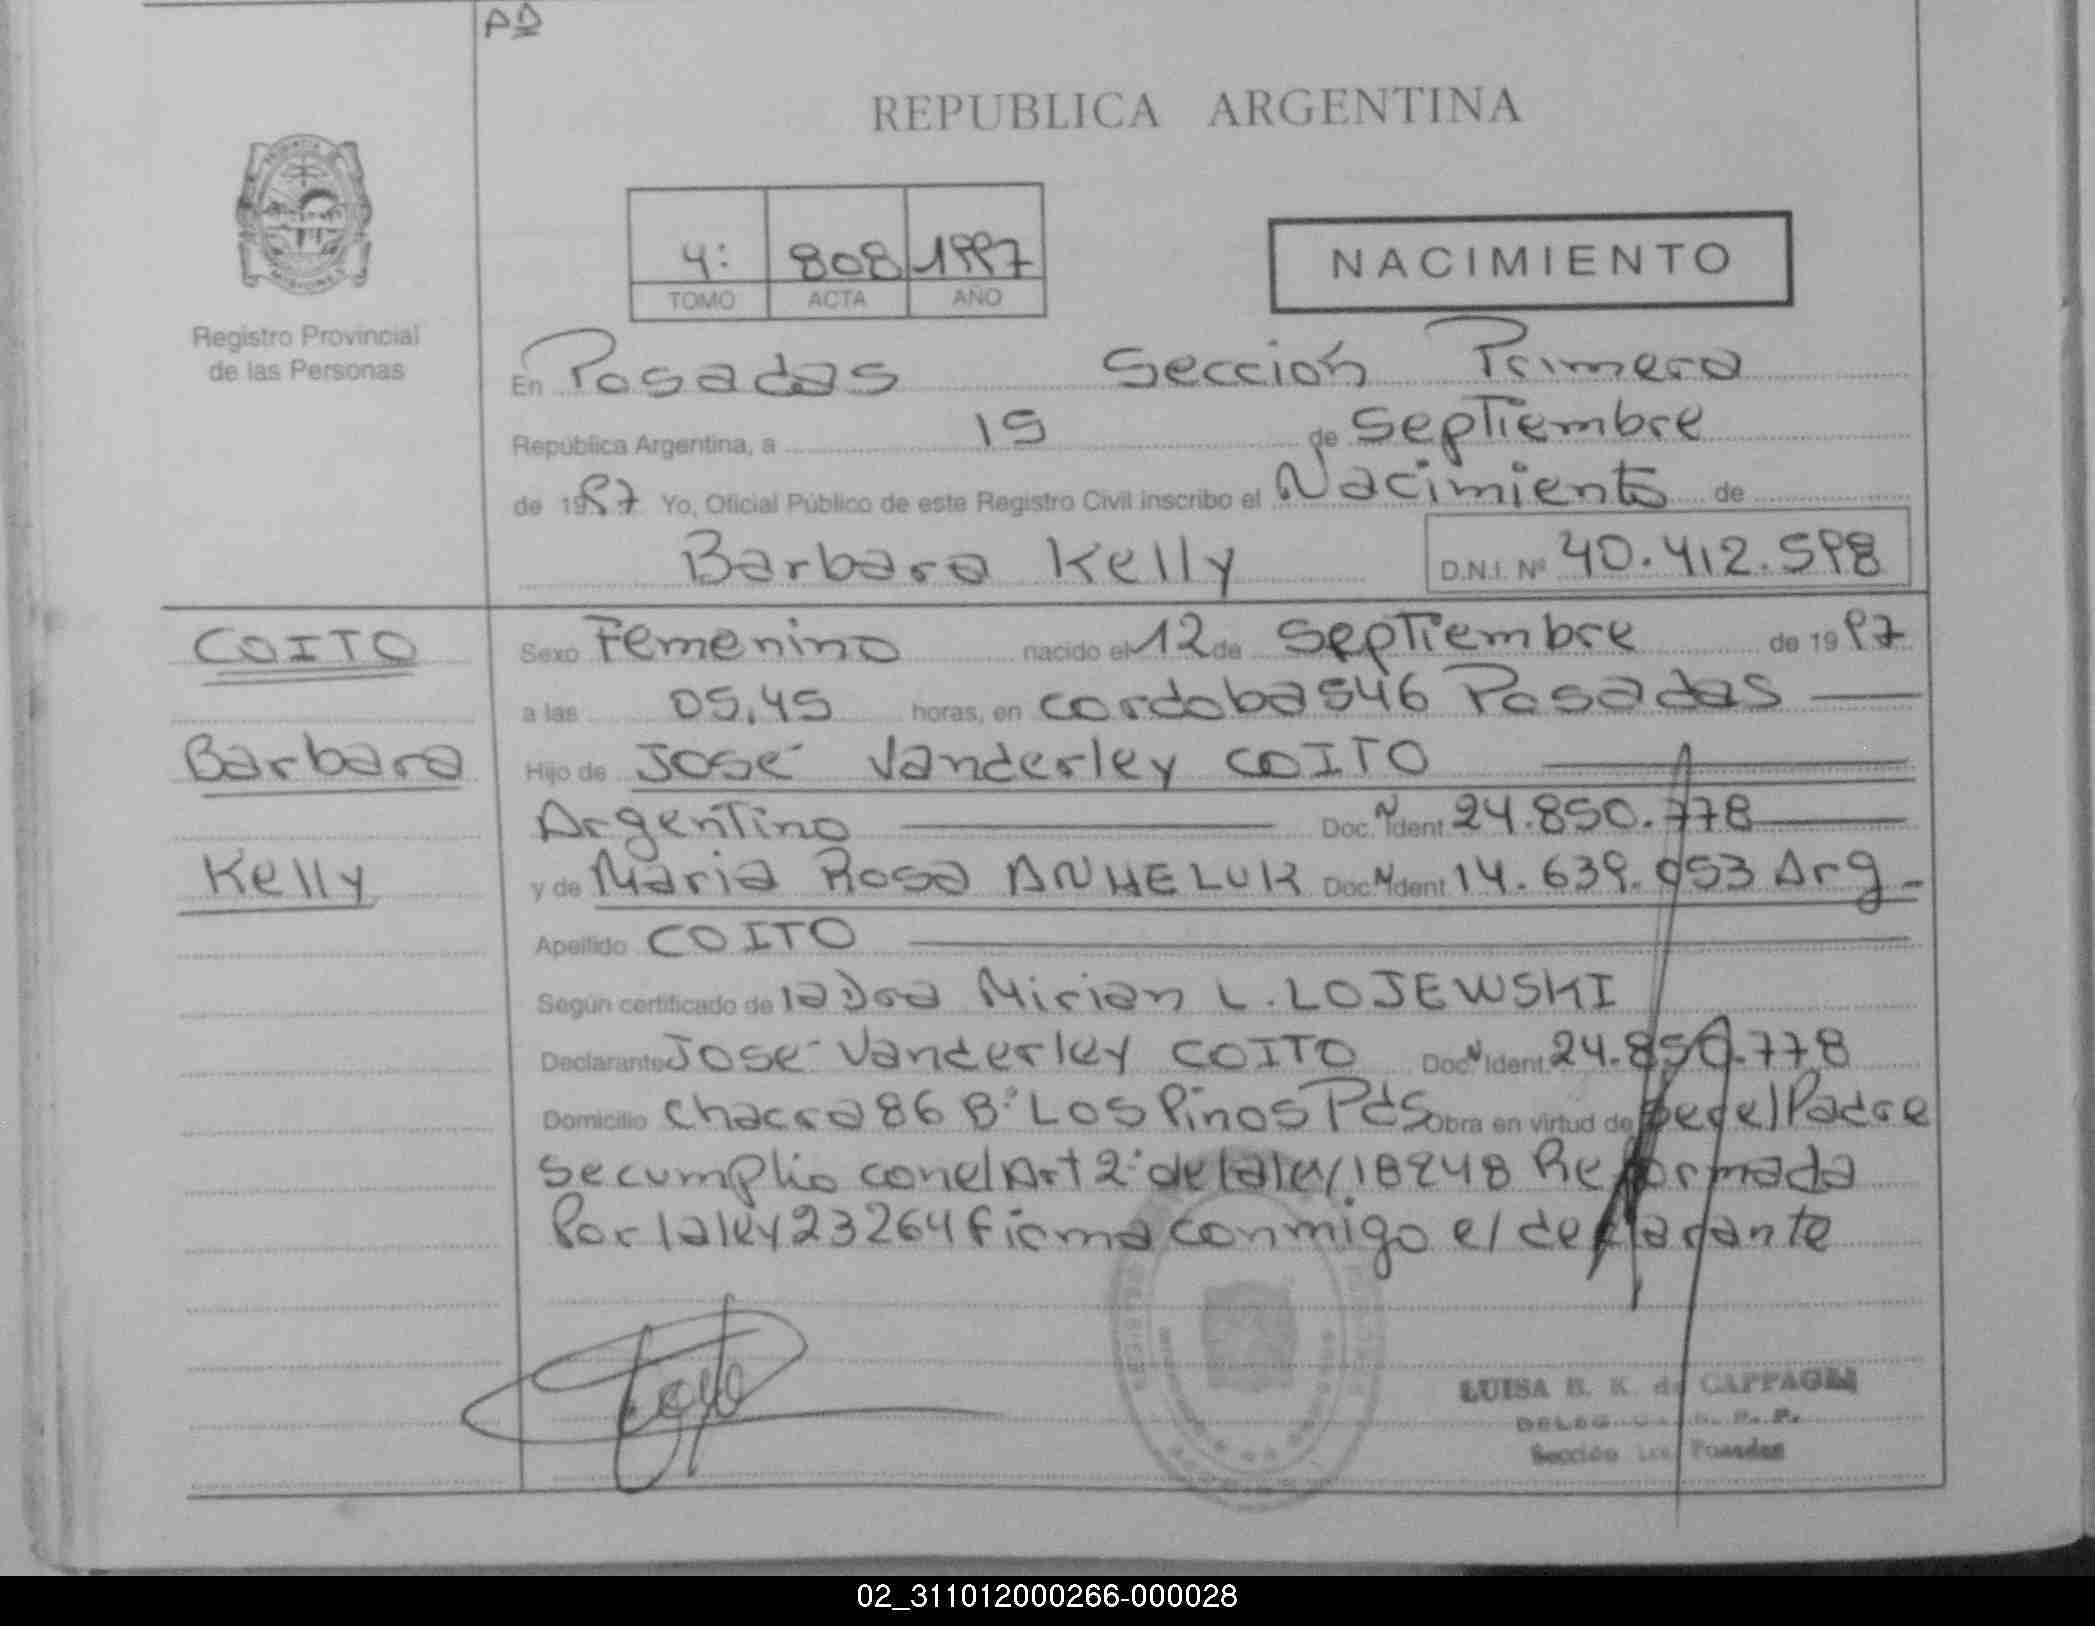 AD
REPUBLICA ARGENTINA
4: 808 1997
TOMO ACTA AÑO
NACIMIENTO
Registro Provincial
de las Personas
En Posadas Sección Primera
República Argentina, a 15 de Septiembre
de 1997 Yo, Oficial Público de este Registro Civil inscribo el Nacimiento de
Barbara Kelly D.N.I. Nº 40.412.598
COITO
Barbara
Kelly
Sexo Femenino nacido el 12 de Septiembre de 1997
a las 05,45 horas, en cordoba 546 Posadas
Hijo de José Vanderley COITO
Argentino Doc. N Ident 24.850.778
y de Maria Rosa ANHELUK Doc. N Ident 14.639.953 Arg.
Apellido COITO
Según certificado de la Dra Mirian L. LOJEWSKI
Declarante José Vanderley COITO Doc. N Ident. 24.850.778
Domicilio Chacra 86 Bº Los Pinos Pdas Obra en virtud de ser el Padre
se cumplio con el Art 2º de la ley 18248 Reformada
Por la ley 23264 firma conmigo el declarante
LUISA B. K. de
Sección Posadas
02_311012000266-000028